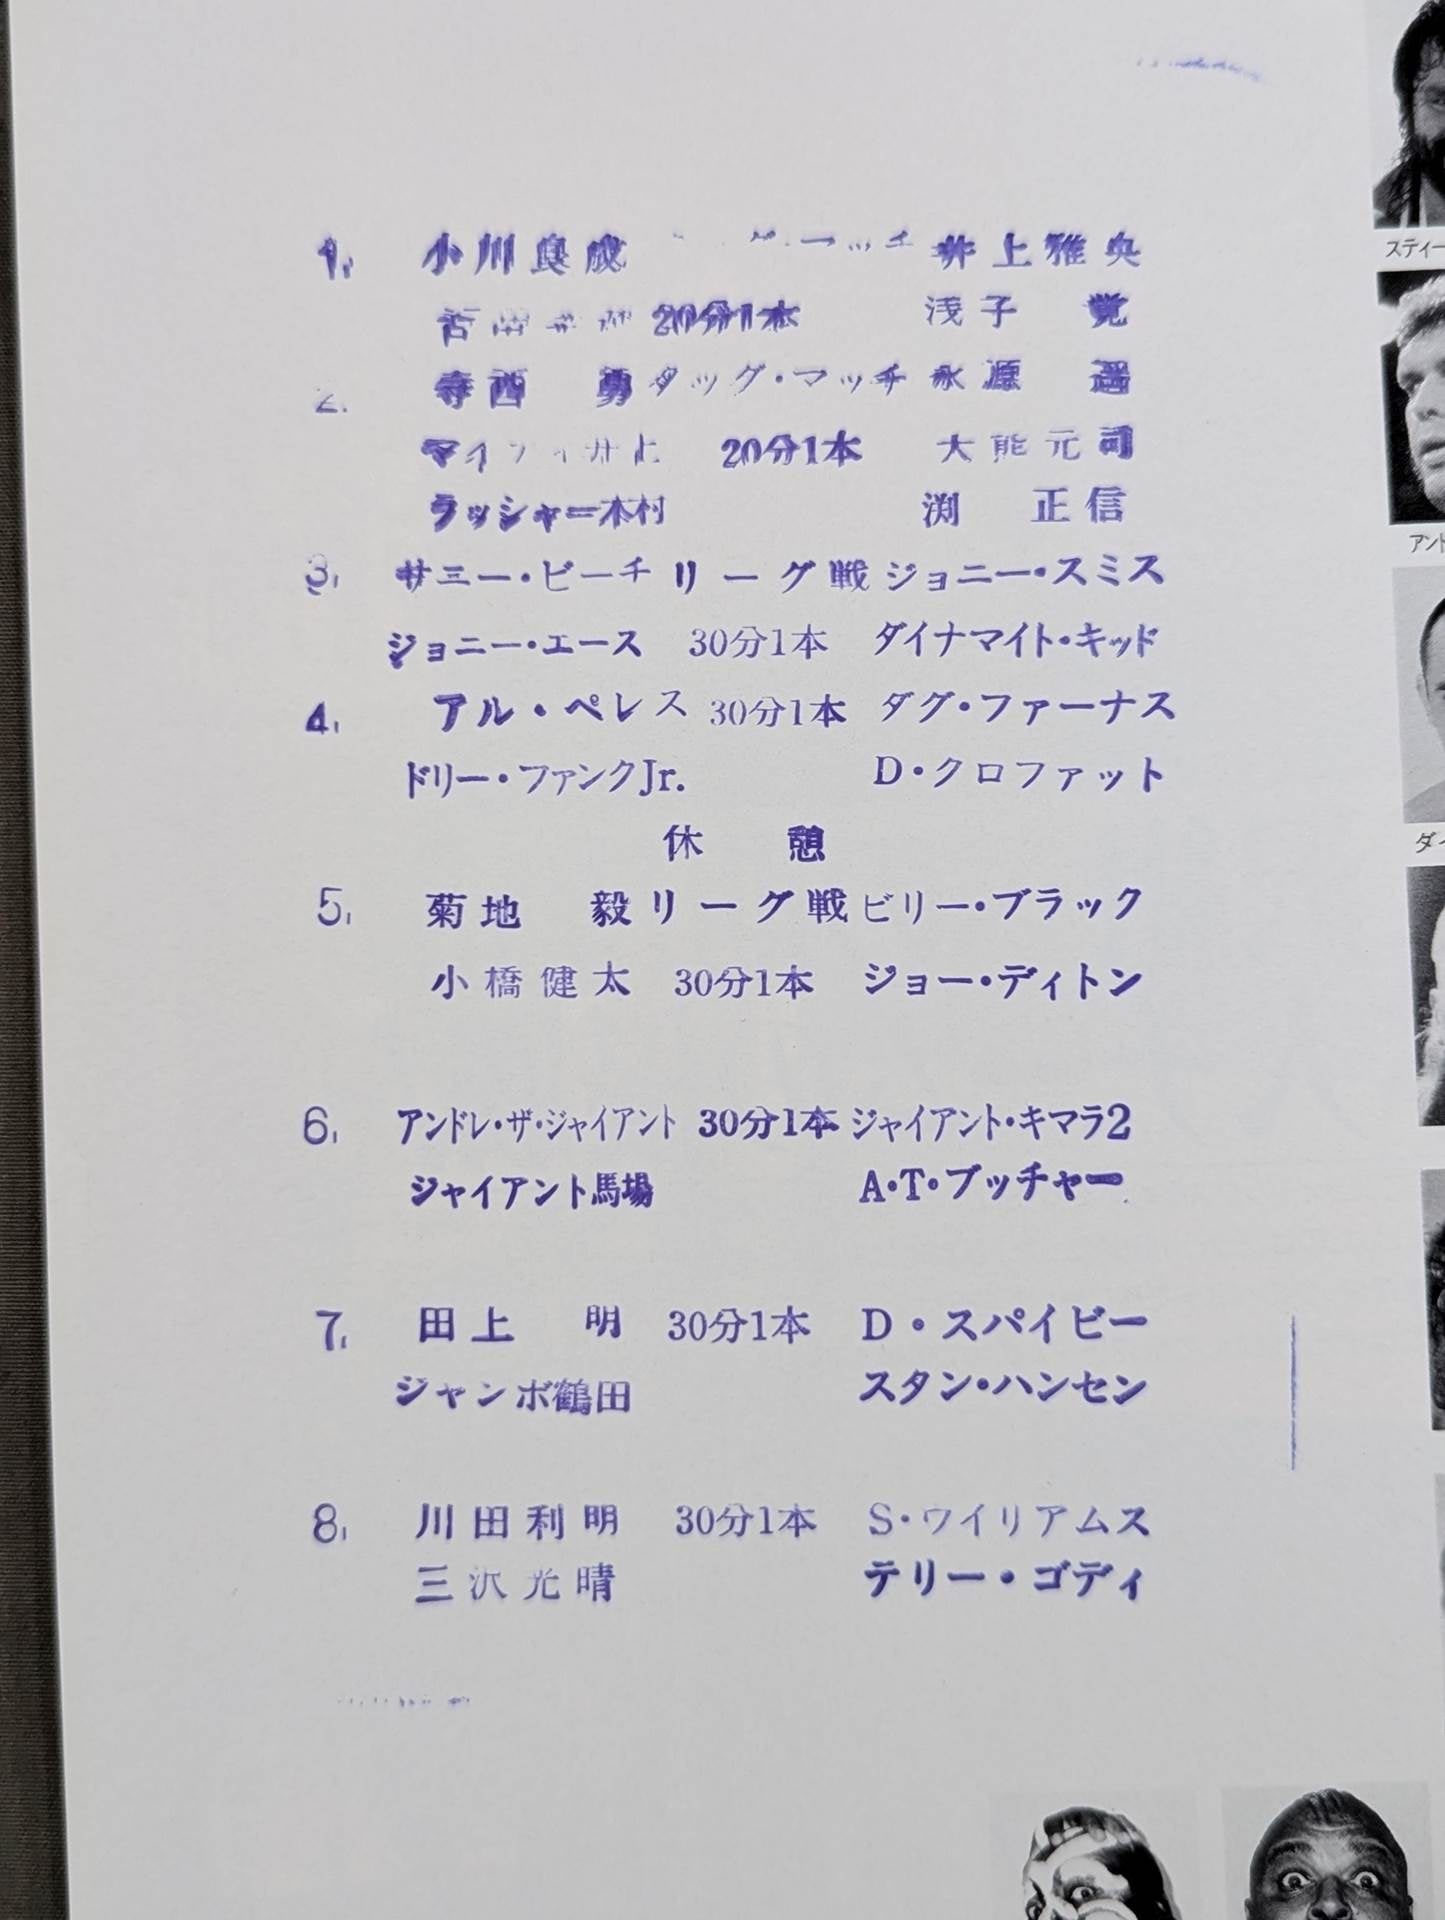 1. 小川良成 井上雅央
20分1本 浅子 覚
2. 寺西 勇 タッグ・マッチ 永源 遥
マイティ井上 20分1本 大熊元司
ラッシャー木村 渕 正信
3. サニー・ビーチ リーグ戦 ジョニー・スミス
ジョニー・エース 30分1本 ダイナマイト・キッド
4. アル・ペレス 30分1本 ダグ・ファーナス
ドリー・ファンクJr. D・クロファット
休 憩
5. 菊地 毅 リーグ戦 ビリー・ブラック
小橋健太 30分1本 ジョー・ディトン
6. アンドレ・ザ・ジャイアント 30分1本 ジャイアント・キマラ2
ジャイアント馬場 A・T・ブッチャー
7. 田上 明 30分1本 D・スパイビー
ジャンボ鶴田 スタン・ハンセン
8. 川田利明 30分1本 S・ウイリアムス
三沢光晴 テリー・ゴディ
スティー
アント
ダイ